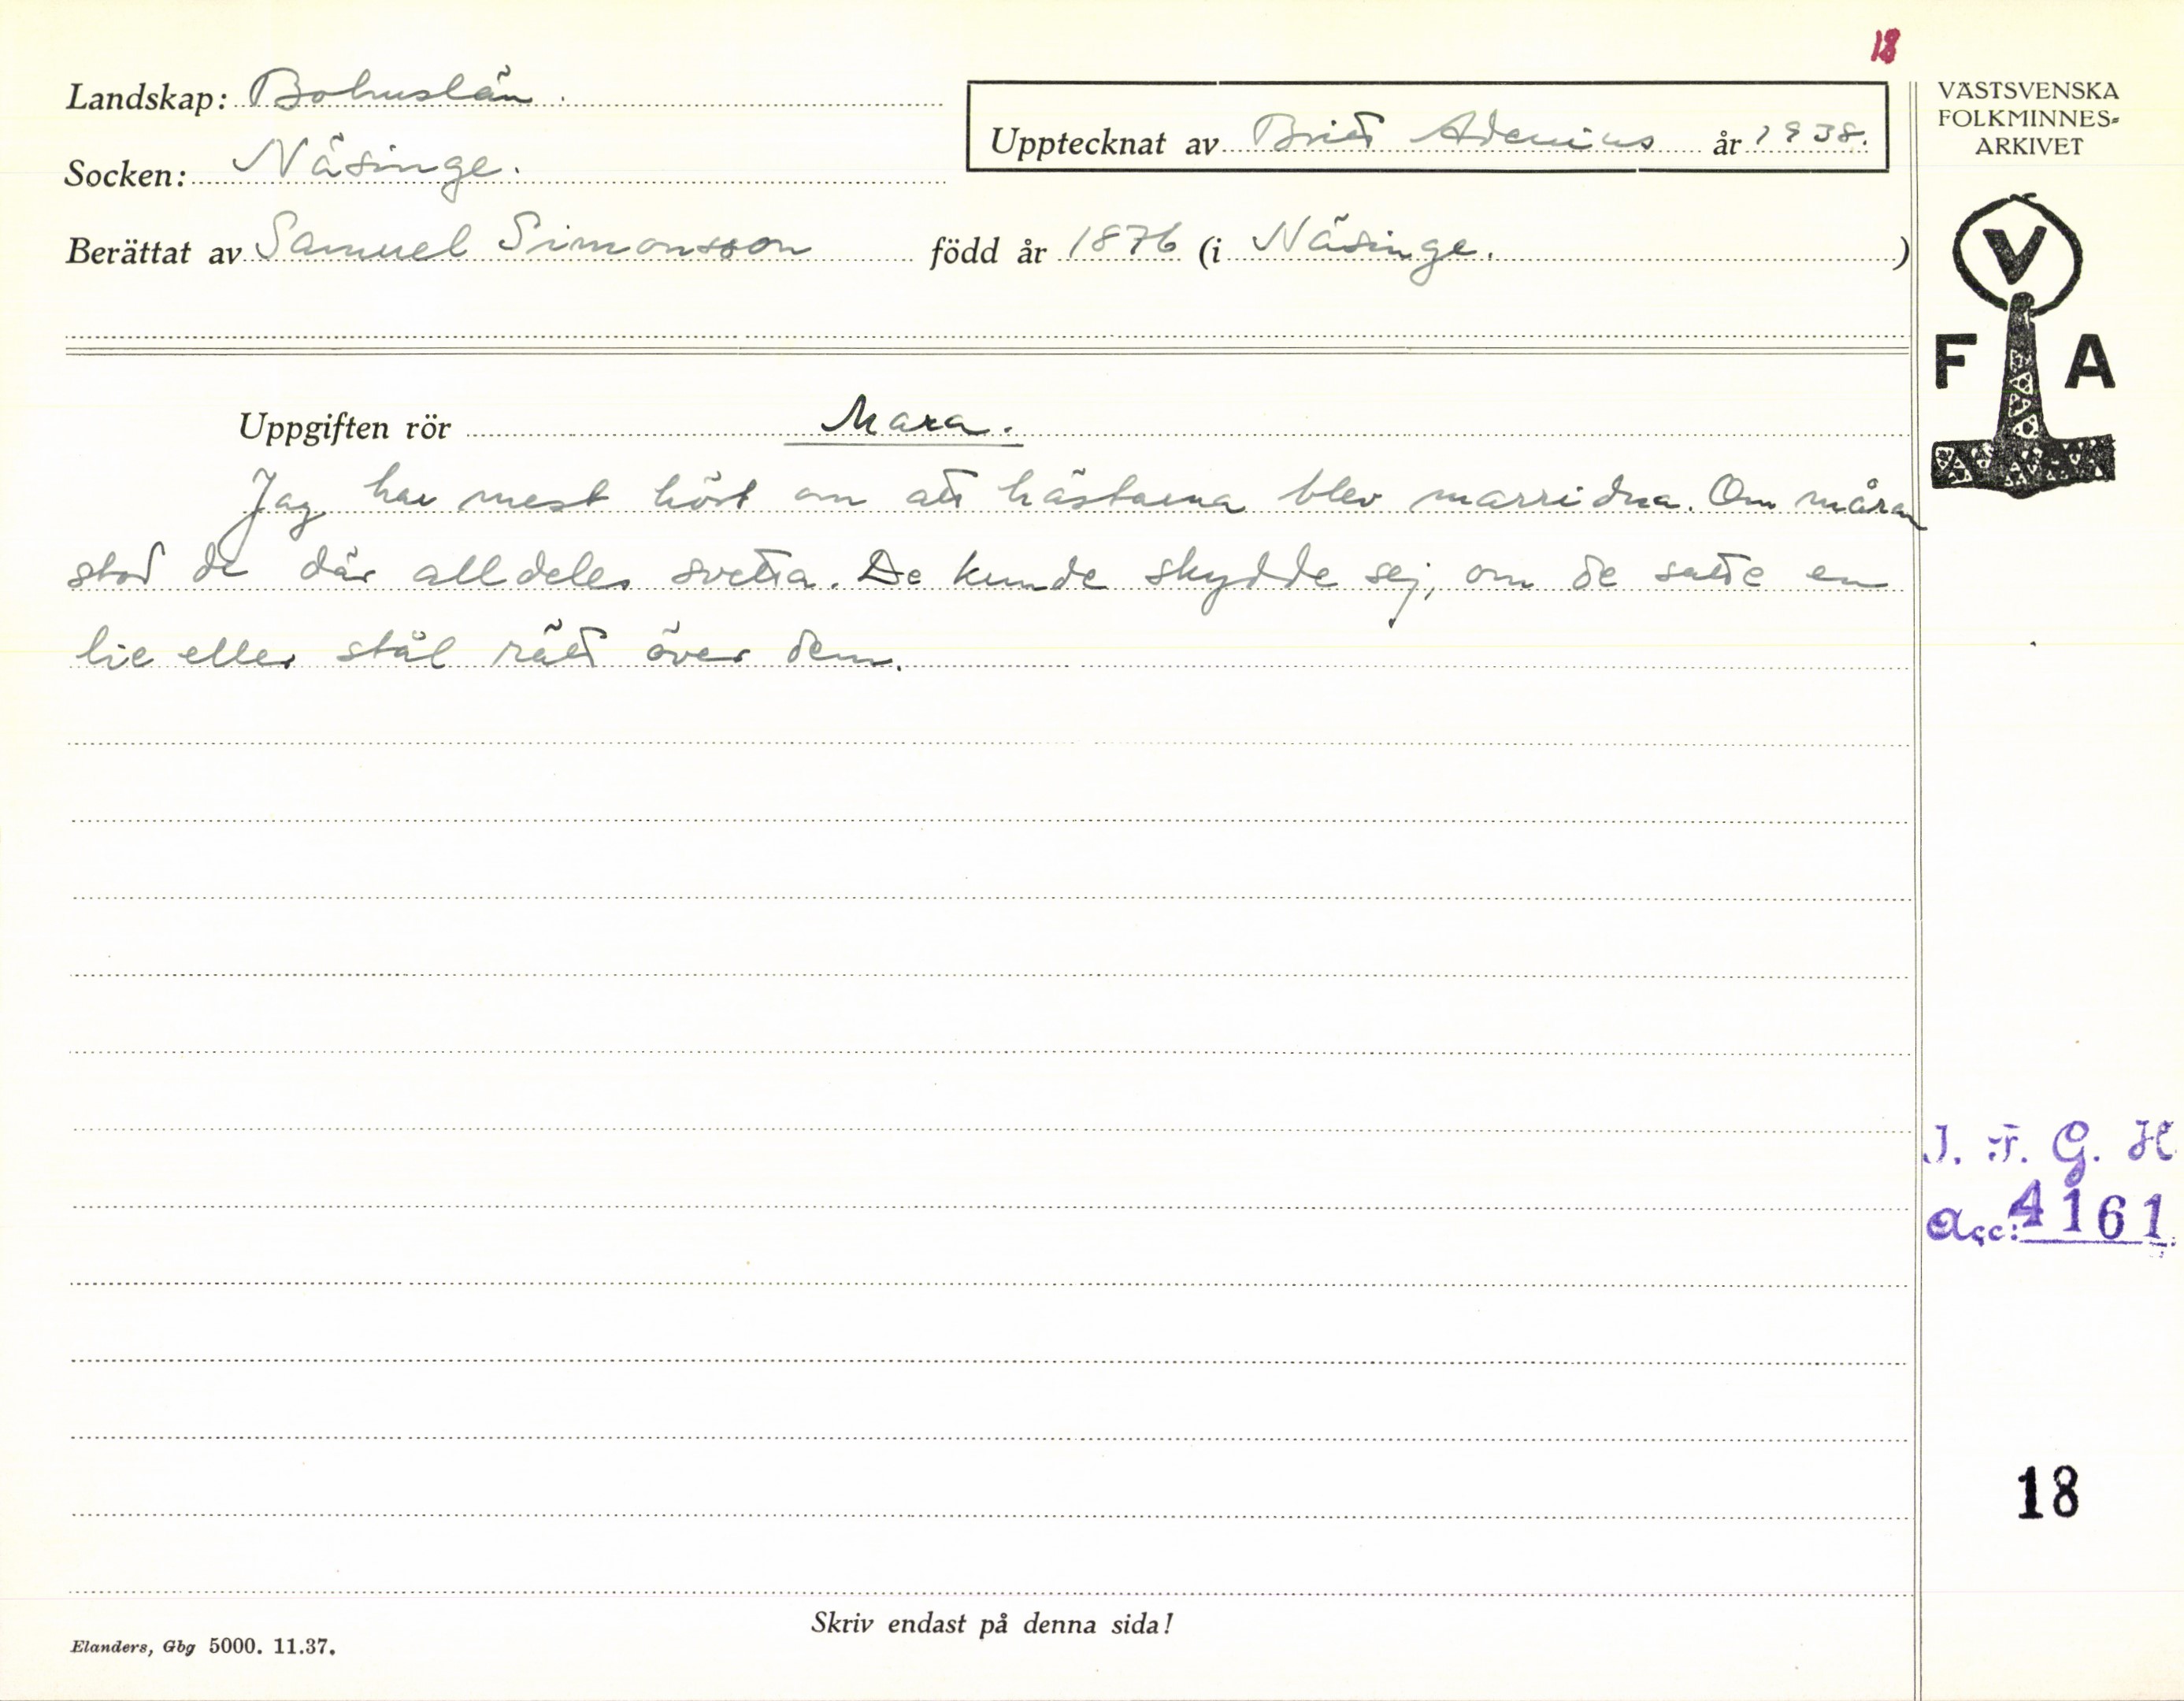 18
Landskap: Bohuslän.
Socken: Näsinge.
Upptecknat av Britt Adenius år 1938.
Berättat av Samuel Simonsson född år 1876 (i Näsinge. )
VÄSTSVENSKA
FOLKMINNES-
ARKIVET
V
F A
Uppgiften rör Mara.
Jag har mest hört om att hästarna blev marridna. Om måran
stod de där alldeles svetta. De kunde skydde sej, om de satte en
lie eller stål rätt över dem.
I. F. G. H.
Acc: 4161
18
Skriv endast på denna sida!
Elanders, Gbg 5000. 11.37.